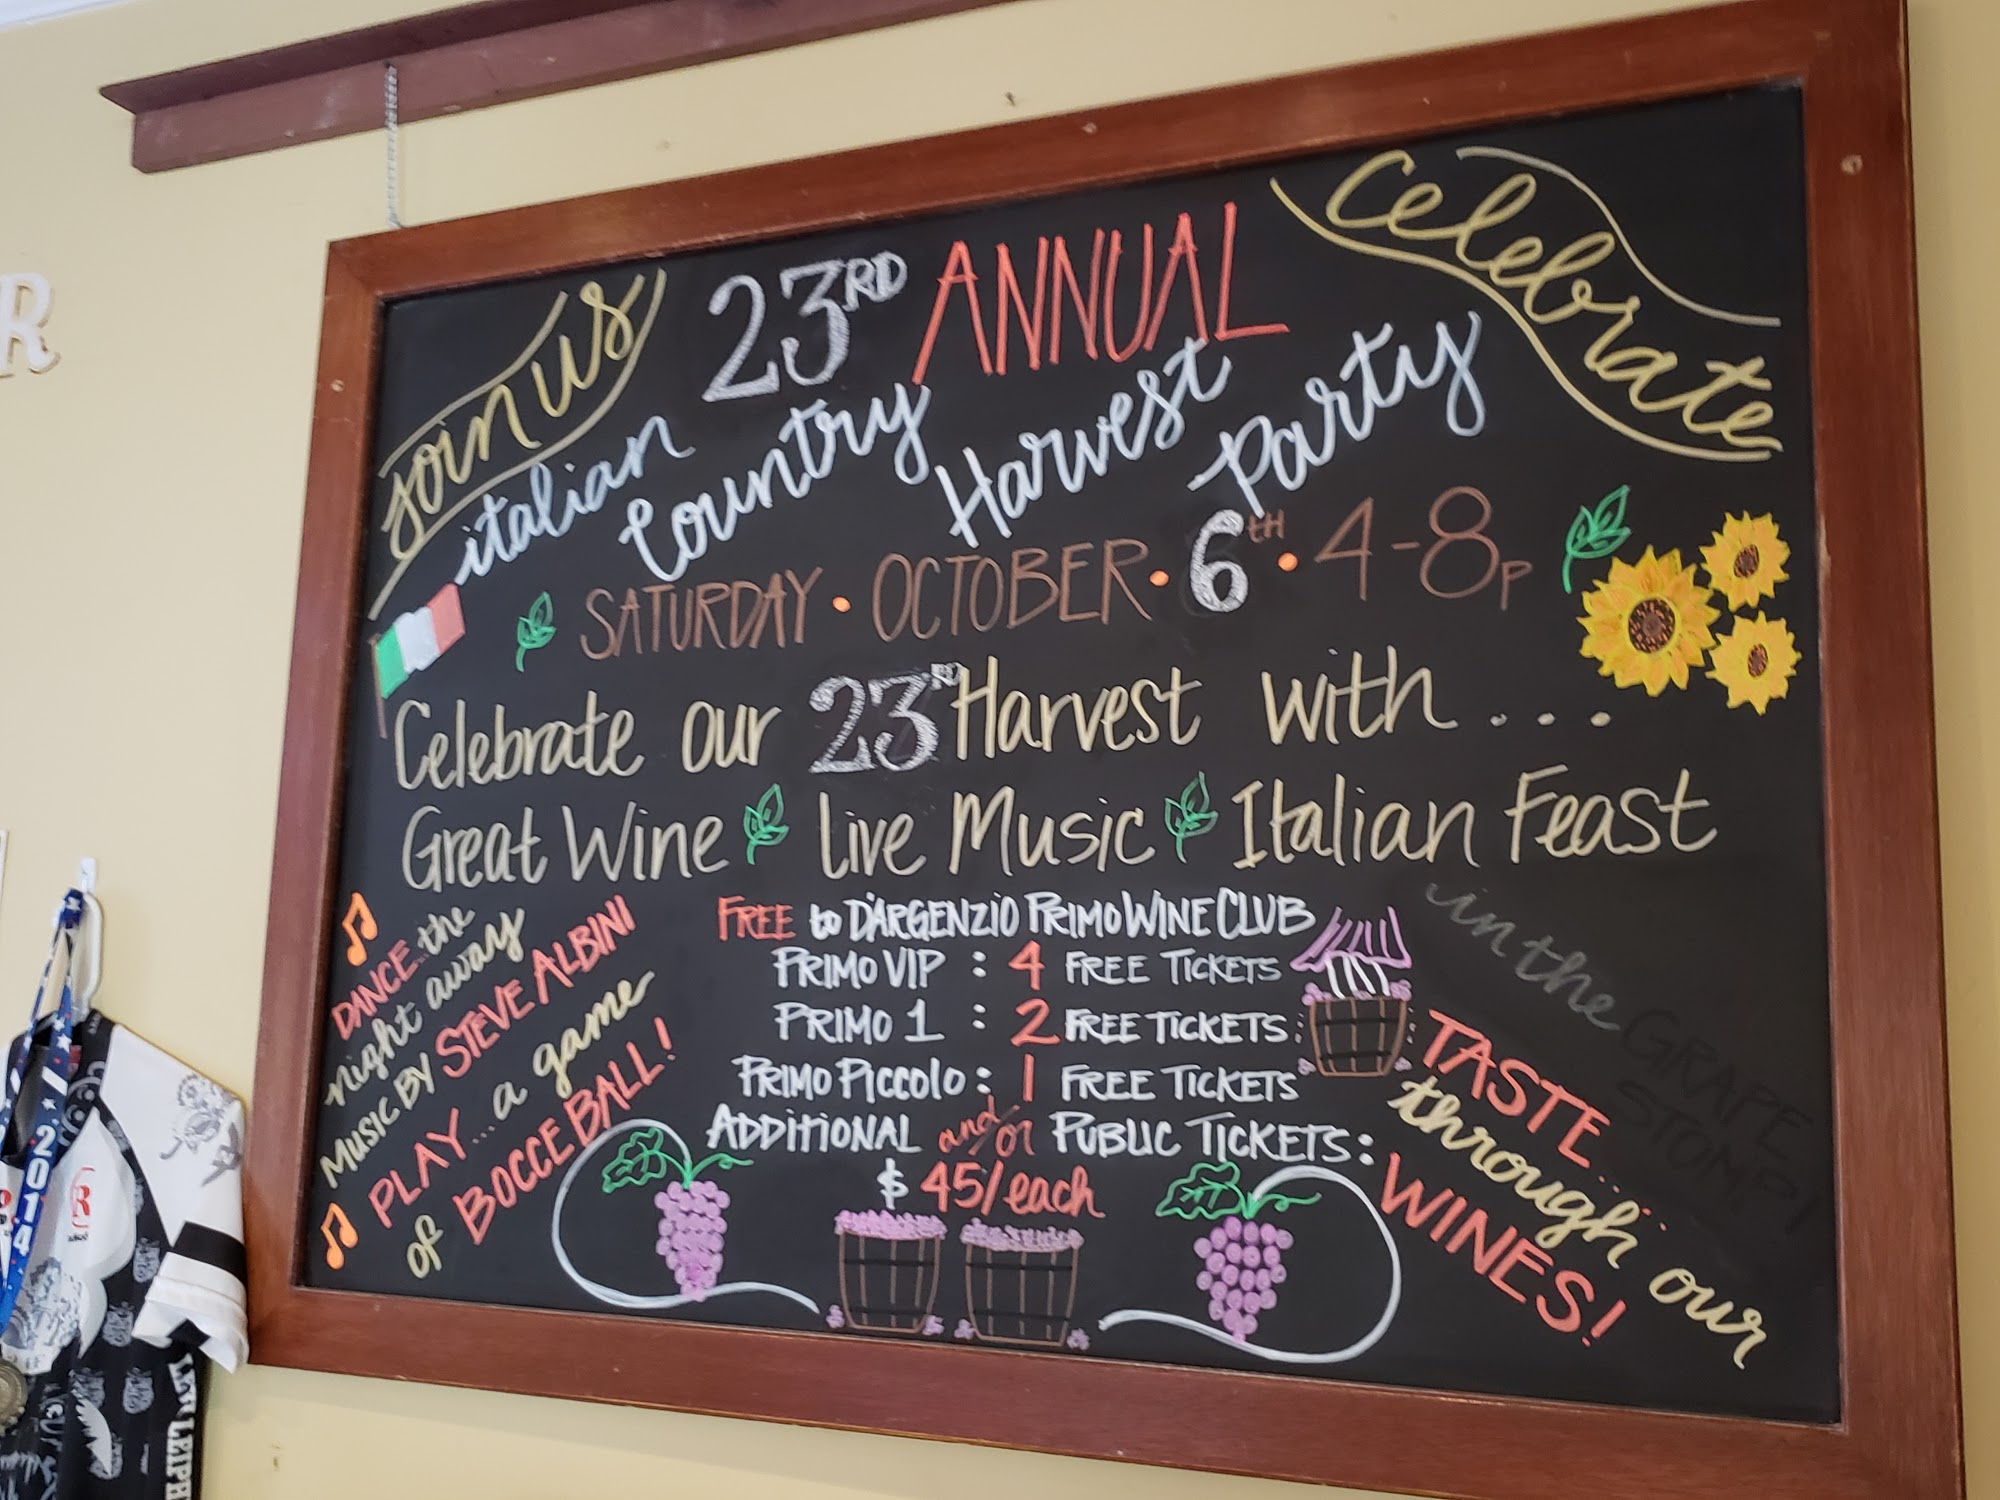 Join us
23RD ANNUAL
Celebrate
italian Country Harvest Party
SATURDAY • OCTOBER • 6TH • 4-8P
Celebrate our 23RD Harvest with . . .
Great Wine Live Music Italian Feast
DANCE the
night away
MUSIC BY STEVE ALBINI
PLAY... a game
of BOCCE BALL!
FREE to D'ARGENZIO PRIMO WINE CLUB
PRIMO VIP : 4 FREE TICKETS
PRIMO 1 : 2 FREE TICKETS
PRIMO PICCOLO : 1 FREE TICKETS
ADDITIONAL and/or PUBLIC TICKETS:
$ 45/each
in the GRAPE
STOMP!
TASTE...
through our
WINES!
R
2014
R
LEVI LEIPH